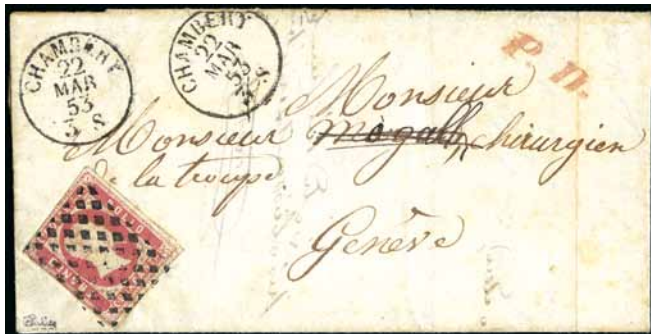 CHAMBERY
22
MAR
53
3 S
CHAMBERY
22
MAR
53
3 S
P. D.
Monsieur
Monsieur chirurgien
de la troupe
Genève